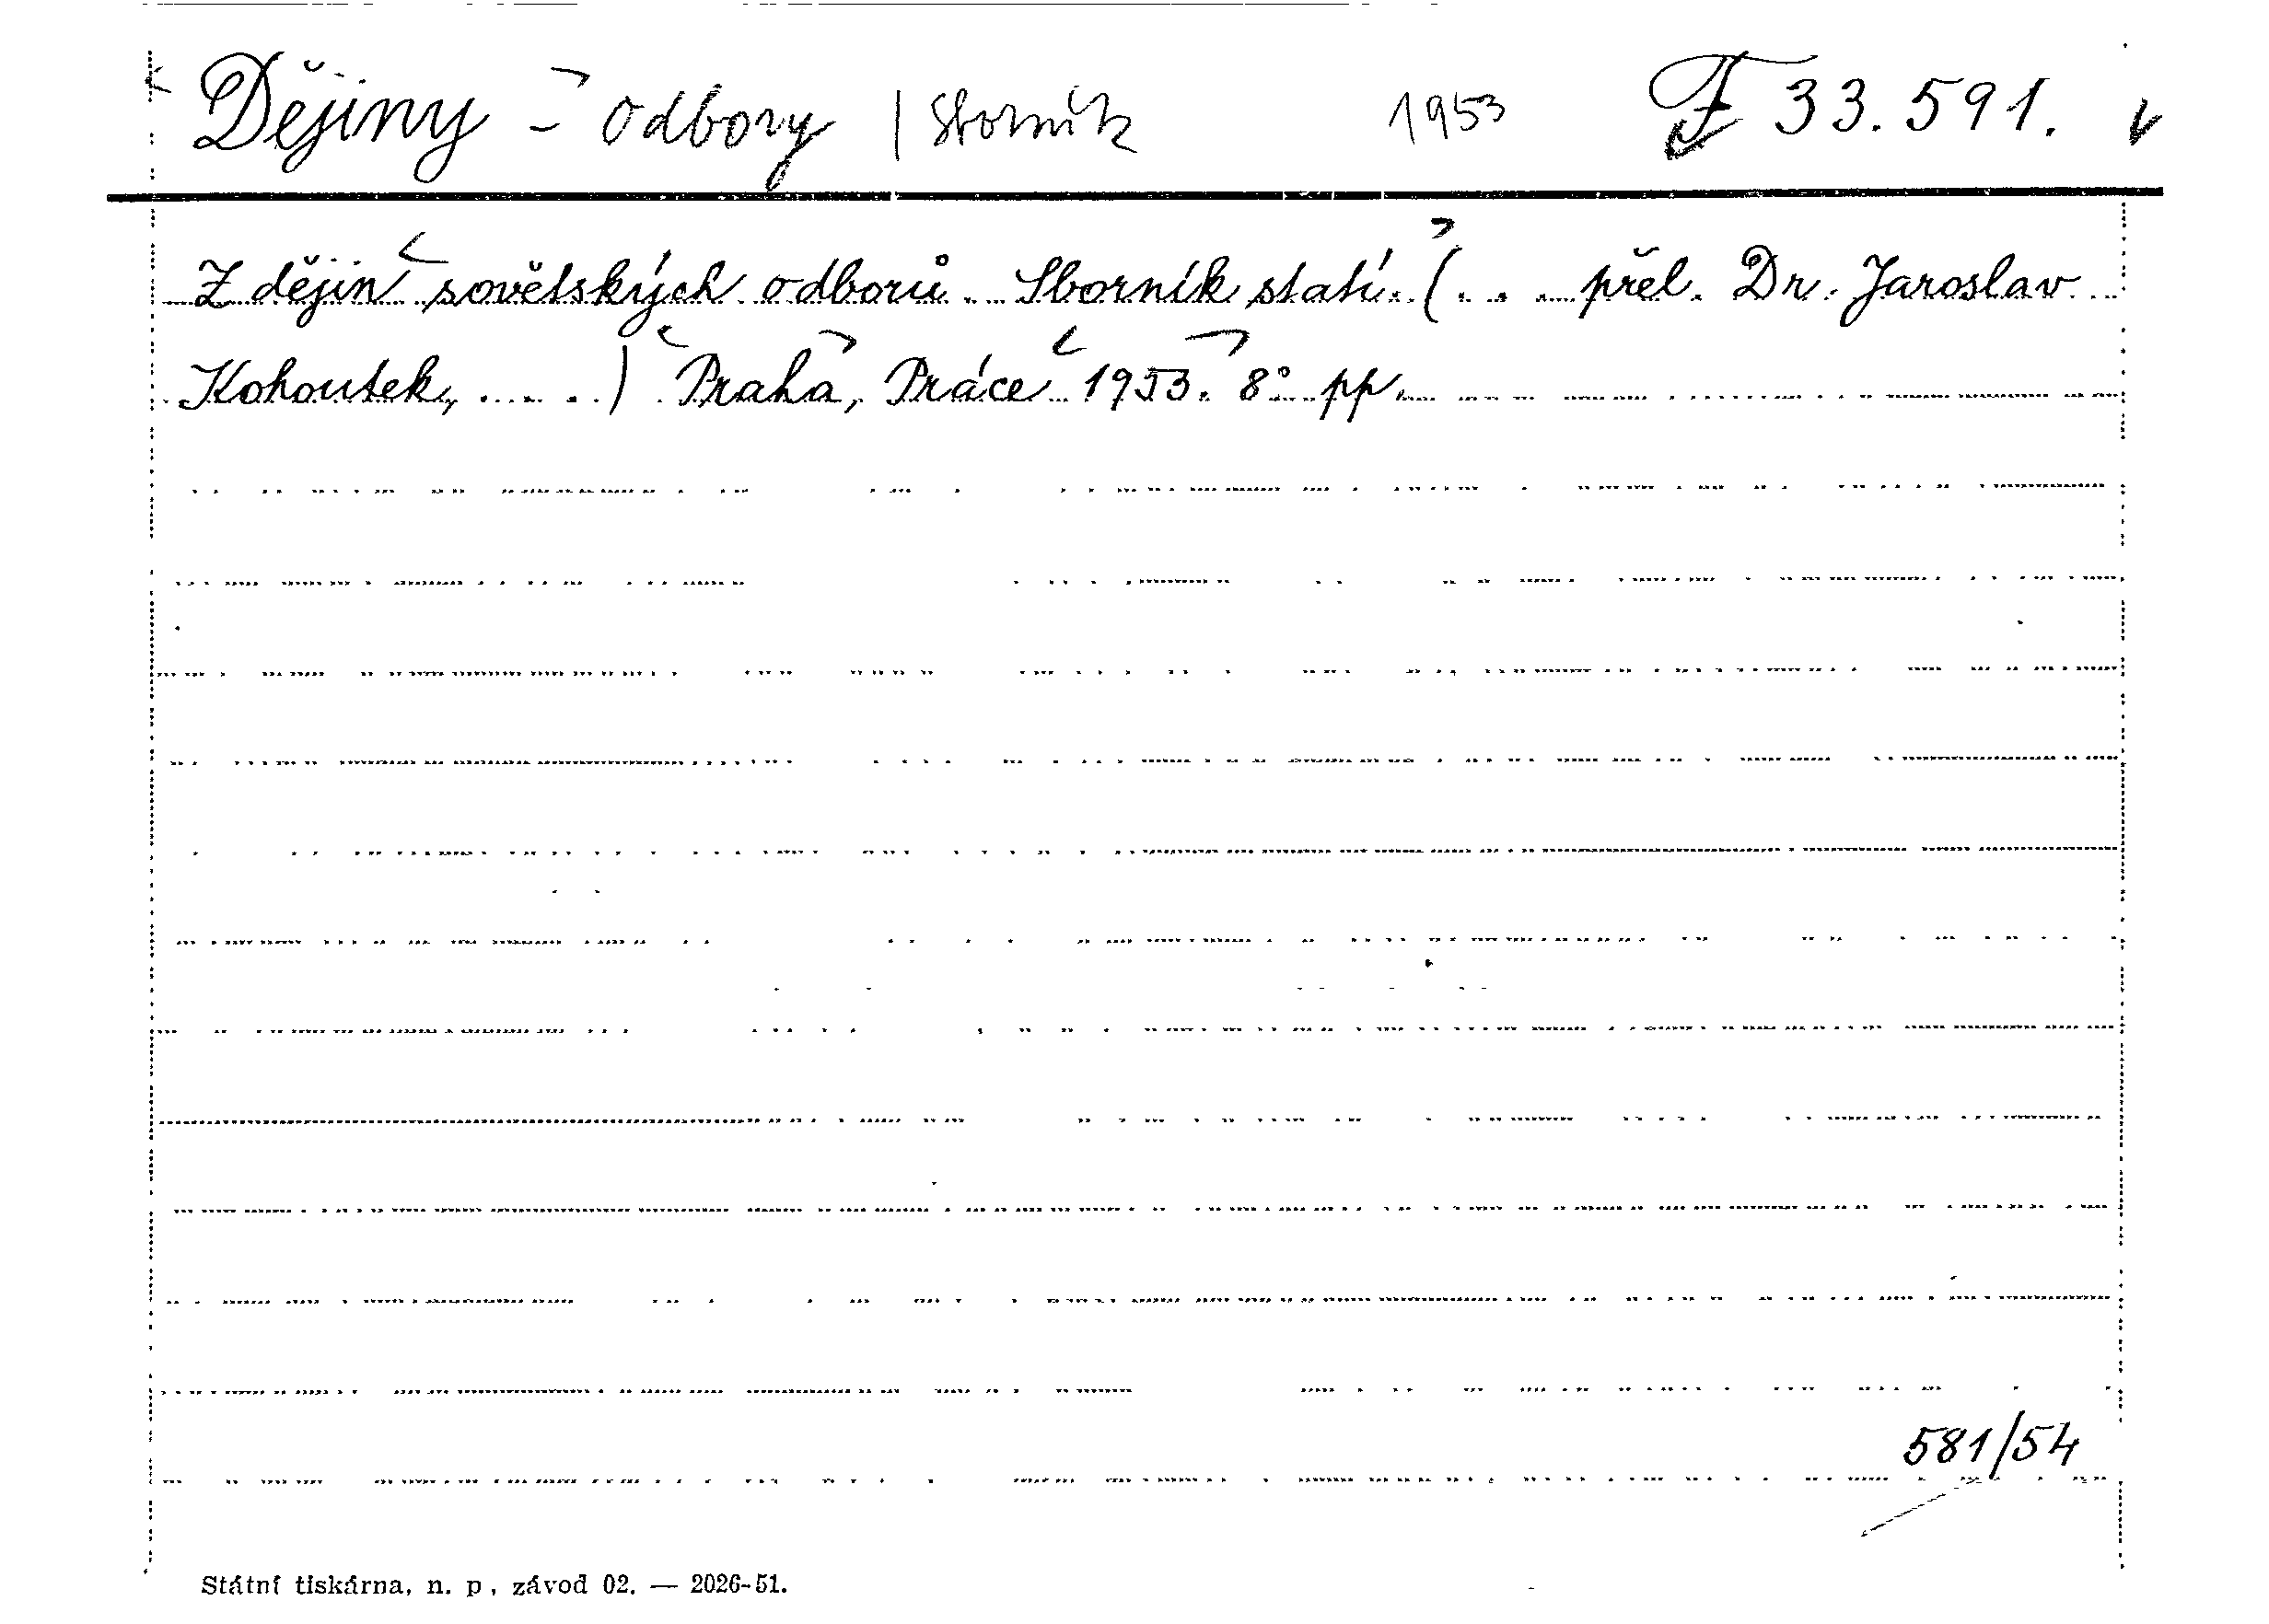 Dějiny - odbory | sborník 1953 F 33.591.
Z dějin sovětských odborů. Sborník statí. (. . . přel. Dr. Jaroslav
Kohoutek, . . . . .) Praha, Práce 1953. 8° pp.
581/54
Státní tiskárna, n. p., závod 02. — 2026-51.